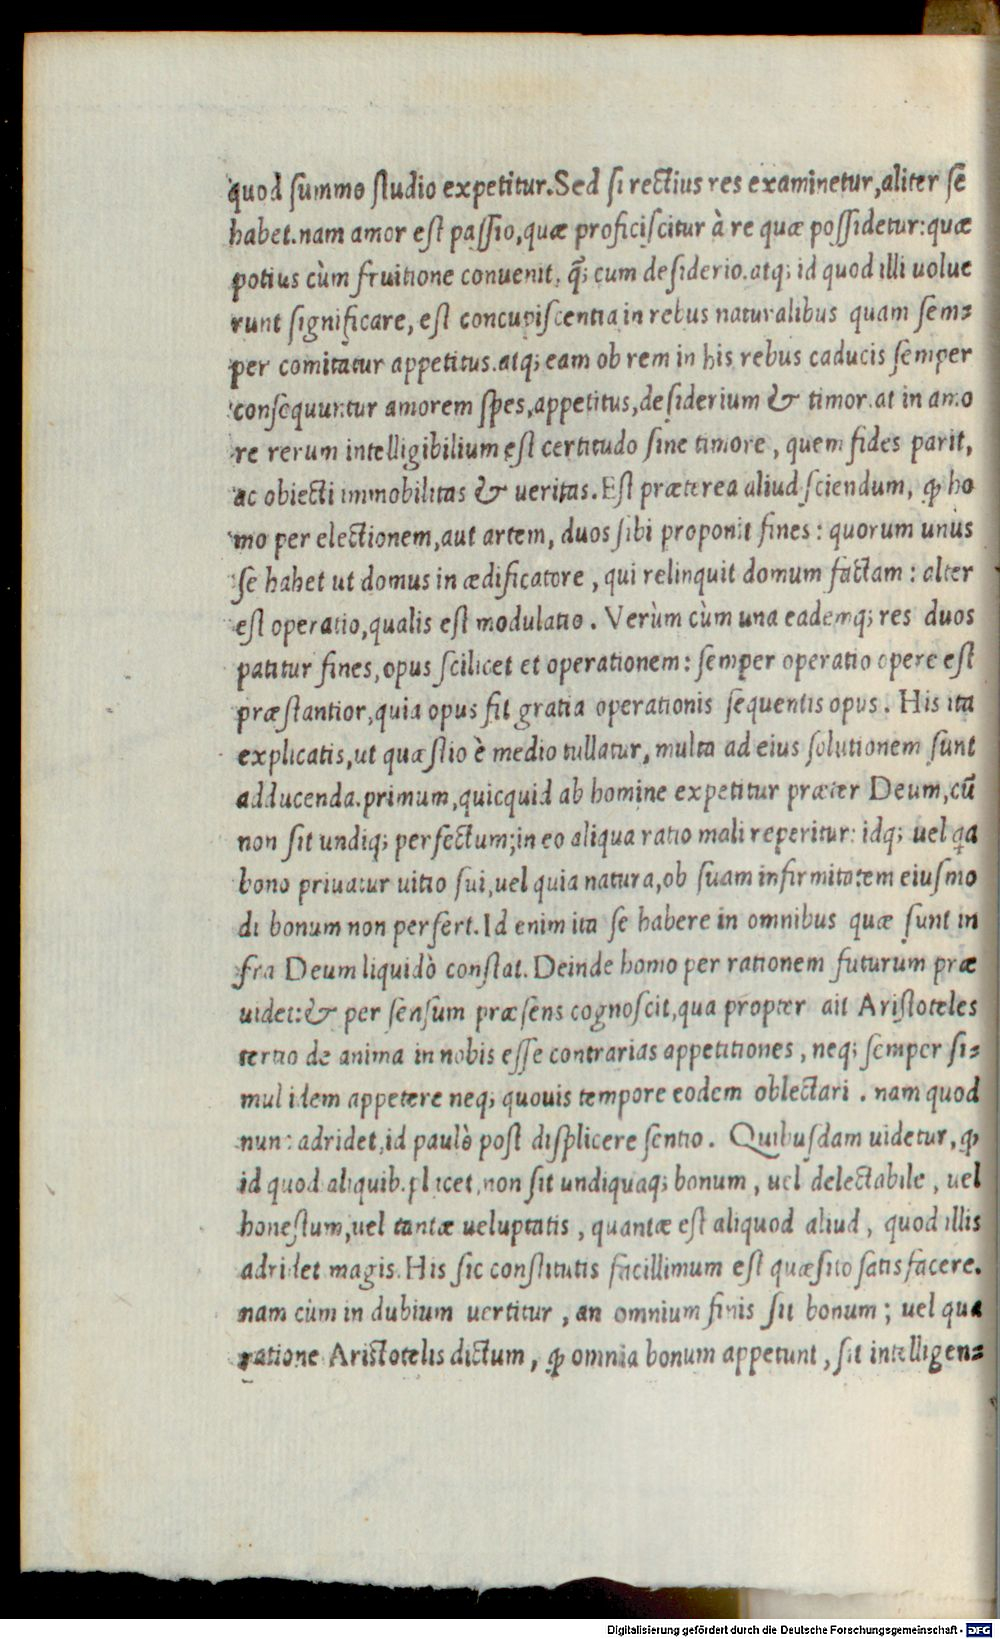 quod summo studio expetitur. Sed si rectius res examinetur, aliter se
habet. nam amor est passio, quæ proficiscitur à re quæ possidetur: quæ
potius cùm fruitione conuenit, q̃; cum desiderio. atq; id quod illi uolue
runt significare, est concupiscentia in rebus naturalibus quam sem-
per comitatur appetitus. atq; eam ob rem in his rebus caducis semper
consequuntur amorem spes, appetitus, desiderium & timor. at in amo
re rerum intelligibilium est certitudo sine timore, quem fides parit,
ac obiecti immobilitas & ueritas. Est præterea aliud sciendum, ꝙ ho
mo per electionem, aut artem, duos sibi proponit fines: quorum unus
se habet ut domus in ædificatore, qui relinquit domum factam: alter
est operatio, qualis est modulatio. Verùm cùm una eademq; res duos
patitur fines, opus scilicet et operationem: semper operatio opere est
præstantior, quia opus fit gratia operationis sequentis opus. His ita
explicatis, ut quæstio è medio tullatur, multa ad eius solutionem sunt
adducenda. primum, quicquid ab homine expetitur præter Deum, cũ
non sit undiq; perfectum; in eo aliqua ratio mali reperitur: idq; uel ꝗa
bono priuatur uitio sui, uel quia natura, ob suam infirmitatem eiusmo
di bonum non perfert. Id enim ita se habere in omnibus quæ sunt in
fra Deum liquidò constat. Deinde homo per rationem futurum præ
uidet: & per sensum præsens cognoscit, qua propter ait Aristoteles
tertio de anima in nobis esse contrarias appetitiones, neq; semper si-
mul idem appetere neq; quouis tempore eodem oblectari. nam quod
nunc adridet, id paulò post displicere sentio. Quibusdam uidetur, ꝙ
id quod aliquib. placet, non sit undiquaq; bonum, uel delectabile, uel
honestum, uel tantæ ueluptatis, quantæ est aliquod aliud, quod illis
adridet magis. His sic constitutis facillimum est quæsito satisfacere.
nam cùm in dubium uertitur, an omnium finis sit bonum; uel qua
ratione Aristotelis dictum, ꝙ omnia bonum appetunt, sit intelligen-
Digitalisierung gefördert durch die Deutsche Forschungsgemeinschaft - DFG